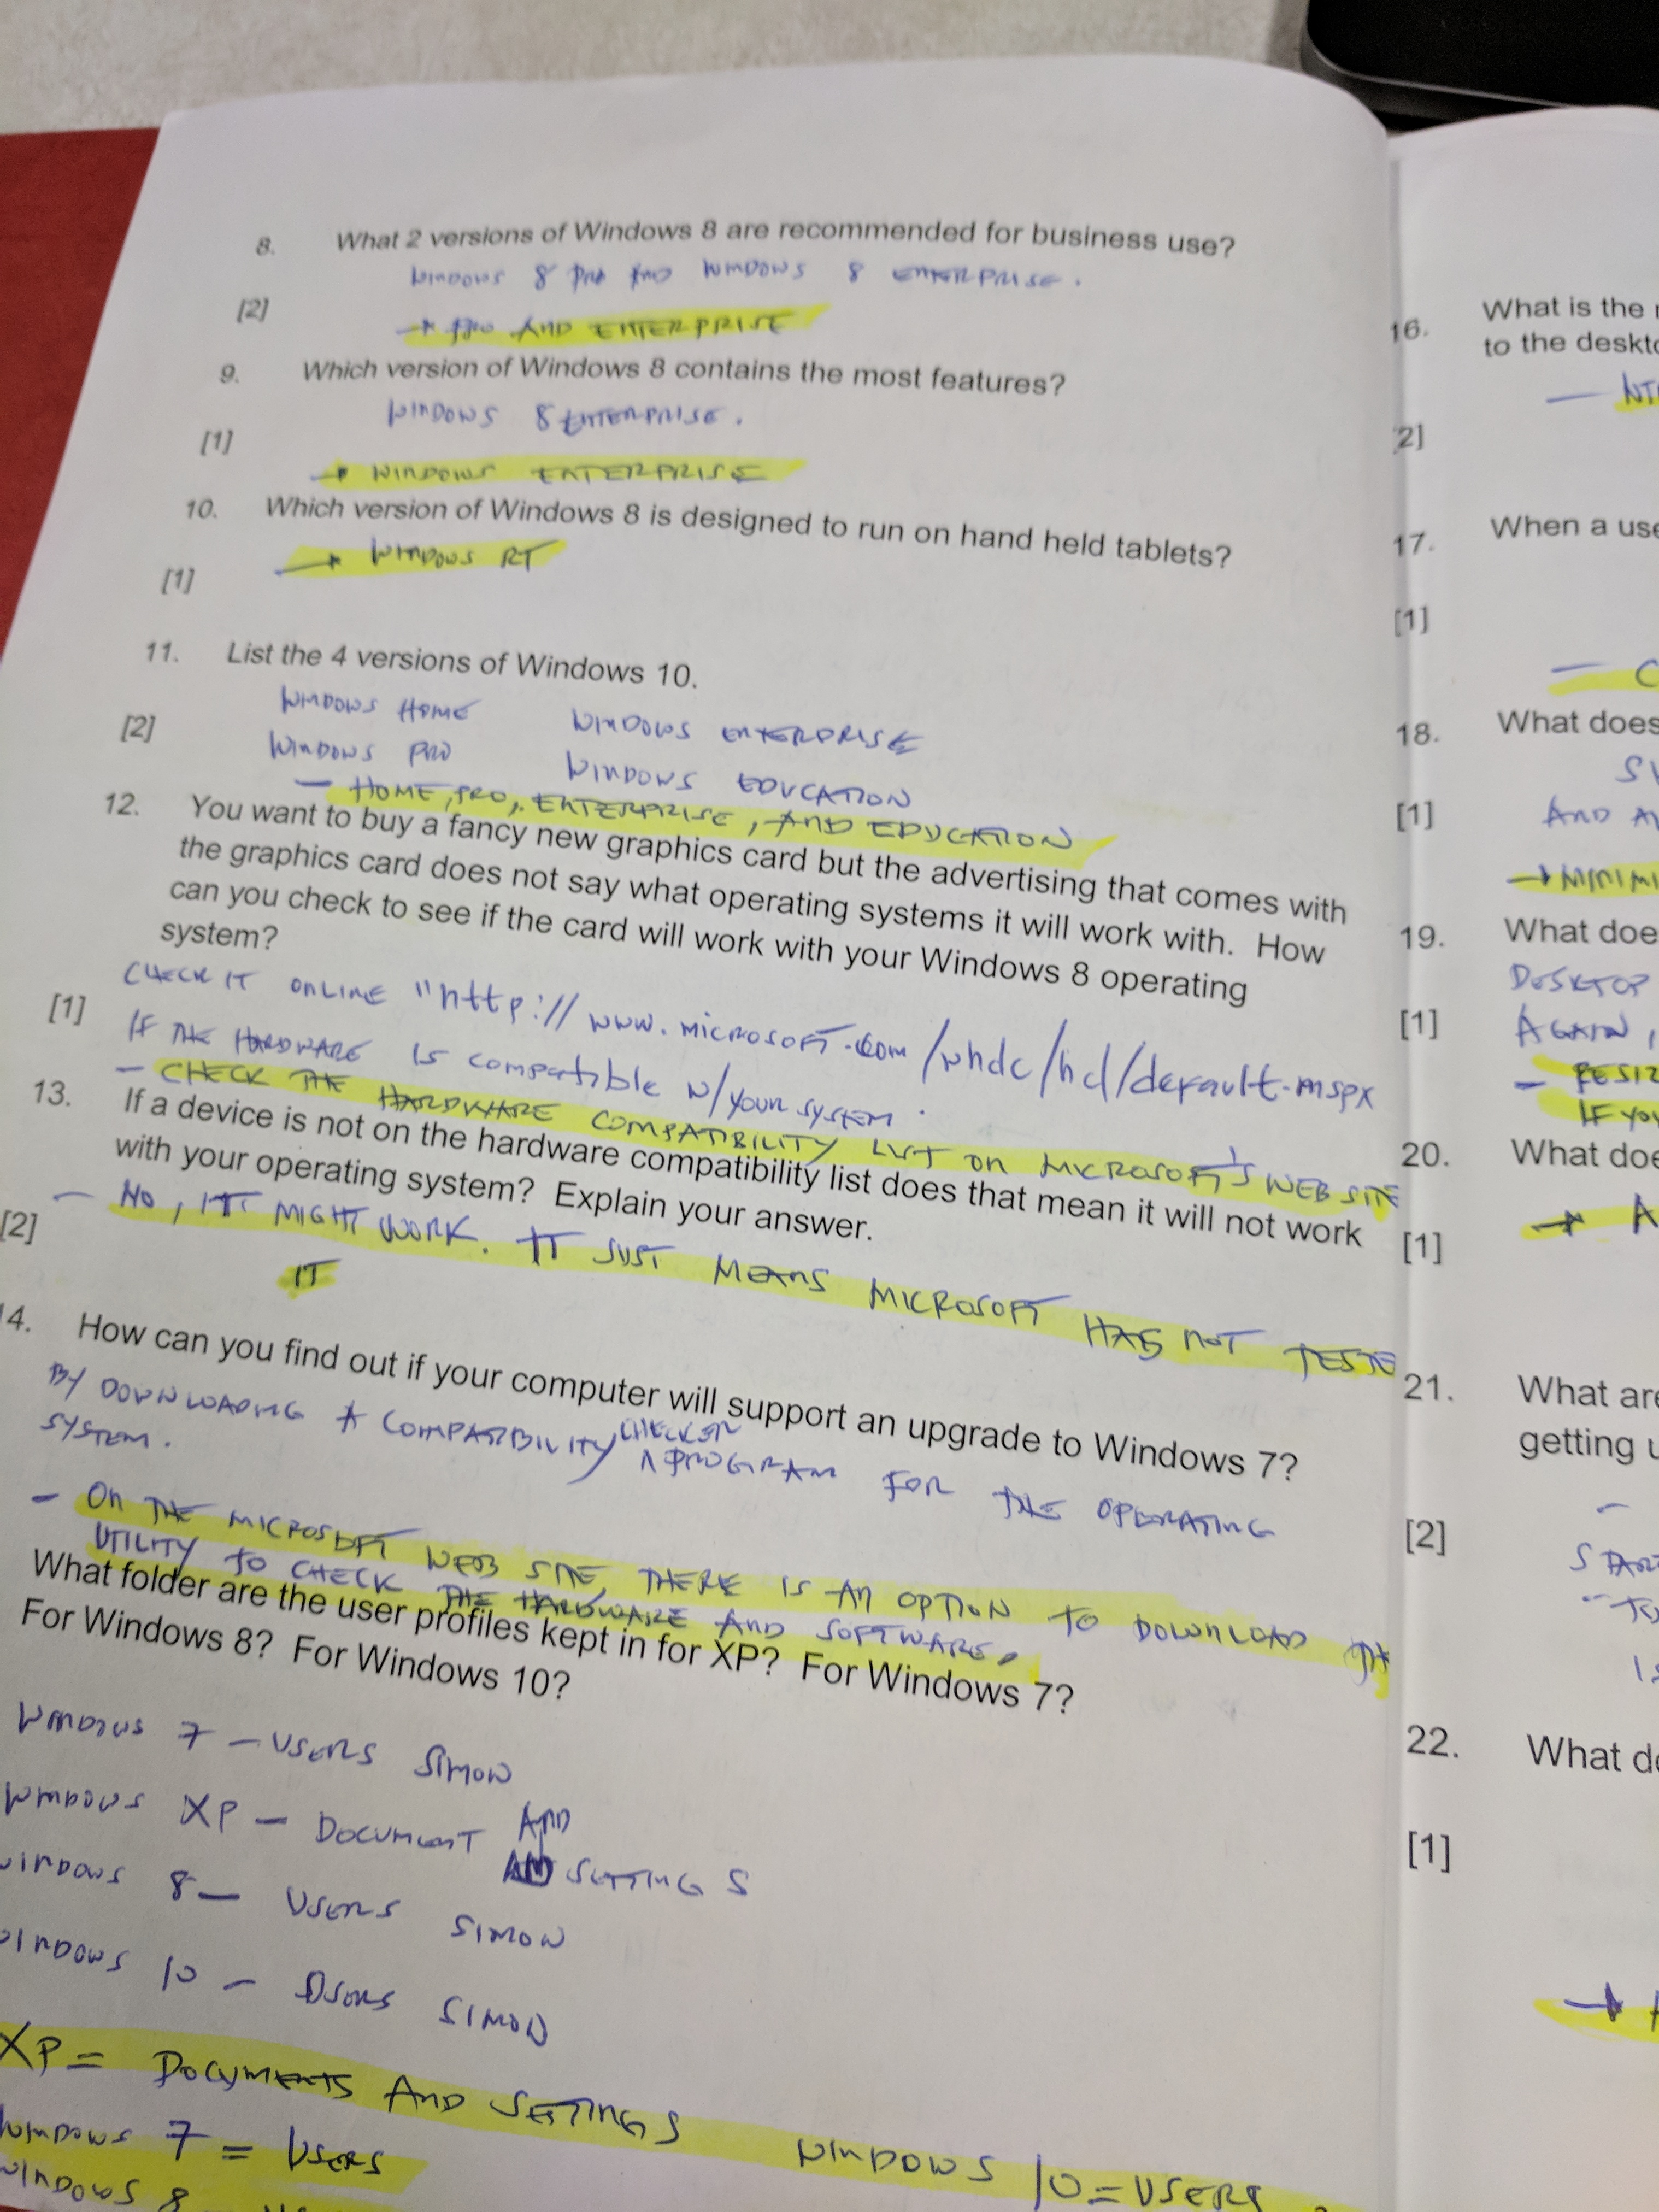 8. What 2 versions of Windows 8 are recommended for business use?
WINDOWS 8 PRO AND WINDOWS 8 ENTERPRISE.
[2]
→ PRO AND ENTERPRISE
9. Which version of Windows 8 contains the most features?
WINDOWS 8 ENTERPRISE.
[1]
→ WINDOWS ENTERPRISE
10. Which version of Windows 8 is designed to run on hand held tablets?
→ WINDOWS RT
[1]
11. List the 4 versions of Windows 10.
WINDOWS HOME WINDOWS ENTERPRISE
[2]
WINDOWS PRO WINDOWS EDUCATION
- HOME, PRO, ENTERPRISE, AND EDUCATION
12. You want to buy a fancy new graphics card but the advertising that comes with
the graphics card does not say what operating systems it will work with. How
can you check to see if the card will work with your Windows 8 operating
system?
CHECK IT ONLINE "http://www.microsoft.com/whdc/hcl/default.mspx
[1]
IF THE HARDWARE IS compatible w/YOUR SYSTEM.
- CHECK THE HARDWARE COMPATIBILITY LIST ON MICROSOFT'S WEB SITE
13. If a device is not on the hardware compatibility list does that mean it will not work
with your operating system? Explain your answer.
- NO, IT MIGHT WORK. IT JUST MEANS MICROSOFT HAS NOT TESTE
[2]
IT
14. How can you find out if your computer will support an upgrade to Windows 7?
BY DOWNLOADING A COMPATIBILITY CHECKER PROGRAM FOR THE OPERATING
SYSTEM.
- ON THE MICROSOFT WEB SITE, THERE IS AN OPTION TO DOWNLOAD
UTILITY TO CHECK THE HARDWARE AND SOFTWARE.
What folder are the user profiles kept in for XP? For Windows 7?
For Windows 8? For Windows 10?
WINDOWS 7 - USERS SIMON
WINDOWS XP - DOCUMENT AND
SETTINGS
WINDOWS 8 - USERS SIMON
WINDOWS 10 - USERS SIMON
XP = DOCUMENTS AND SETTINGS
WINDOWS 7 = USERS
WINDOWS 10 = USERS
WINDOWS 8
16. What is the
to the deskto
[2]
17. When a use
[1]
18. What does
[1]
AND
→ MINIMI
19. What doe
DESKTOP
[1]
AGAIN,
- RESIZ
IF YOU
20. What doe
→ A
[1]
21. What are
getting u
[2]
START
22. What do
[1]